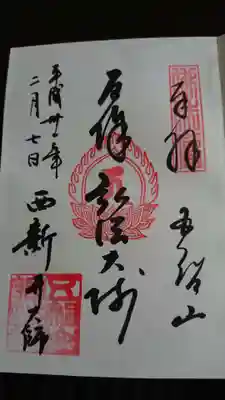 奉拝
五智山
厄除 弘法大師
西新井大師
平成卅一年
二月七日